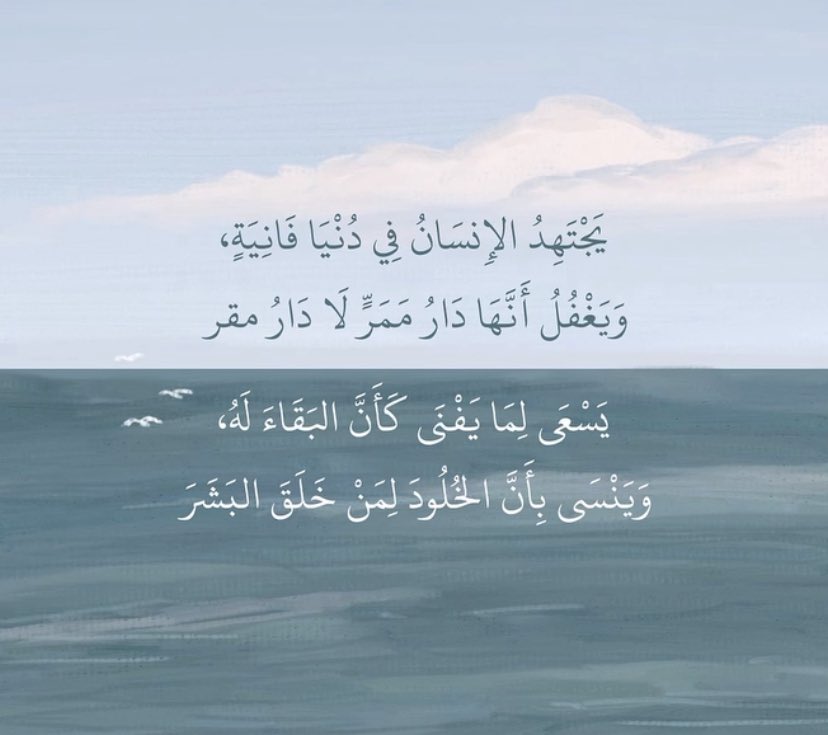 يَجْتَهِدُ الإِنسَانُ فِي دُنْيَا فَانِيَةٍ،
وَيَغْفُلُ أَنَّهَا دَارُ مَمَرٍّ لَا دَارُ مقر
يَسْعَى لِمَا يَفْنَى كَأَنَّ البَقَاءَ لَهُ،
وَيَنْسَى بِأَنَّ الخُلُودَ لِمَنْ خَلَقَ البَشَرَ